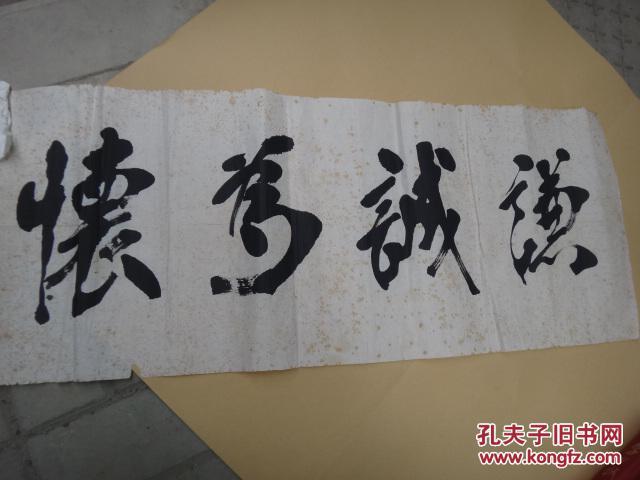 謙誠為懷
孔夫子旧书网
www.kongfz.com